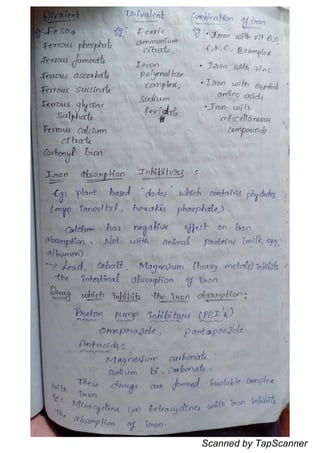 Divalent Trivalent Combination of iron
eg: FeSO4 eg: Ferric eg: • Iron with vit A,D,
Ferrous phosphate ammonium E,K,C, B complex
Ferrous fumarate citrate, • Iron with zinc
Ferrous ascorbate Iron • Iron with essential
Ferrous succinate polymaltose amino acids
Ferrous glycine complex, • Iron with
Sulphate Sodium miscellaneous
Ferrous calcium feredate compounds
citrate
Carbonyl Iron
Iron absorption Inhibitors :
Eg: plant based which contains phydates
(myo Ionositol, hexakis phosphate)
Calcium has negative effect on Iron
absorption. Not with animal proteins (milk, egg,
albumen)
→ Lead, Cobalt, Magnesium (heavy metals) inhibits
the intestinal absorption of Iron.
Drug which inhibits the iron absorption:
Proton pump inhibitors (PPI's)
omeprazole, pantoprazole
Antacids:
Magnesium carbonate
Sodium bi-carbonate.
These drugs are formed insoluble complex
with Iron
Eg: Minocyclins (or) tetracyclines with iron inhibits
the absorption of iron.
Scanned by TapScanner